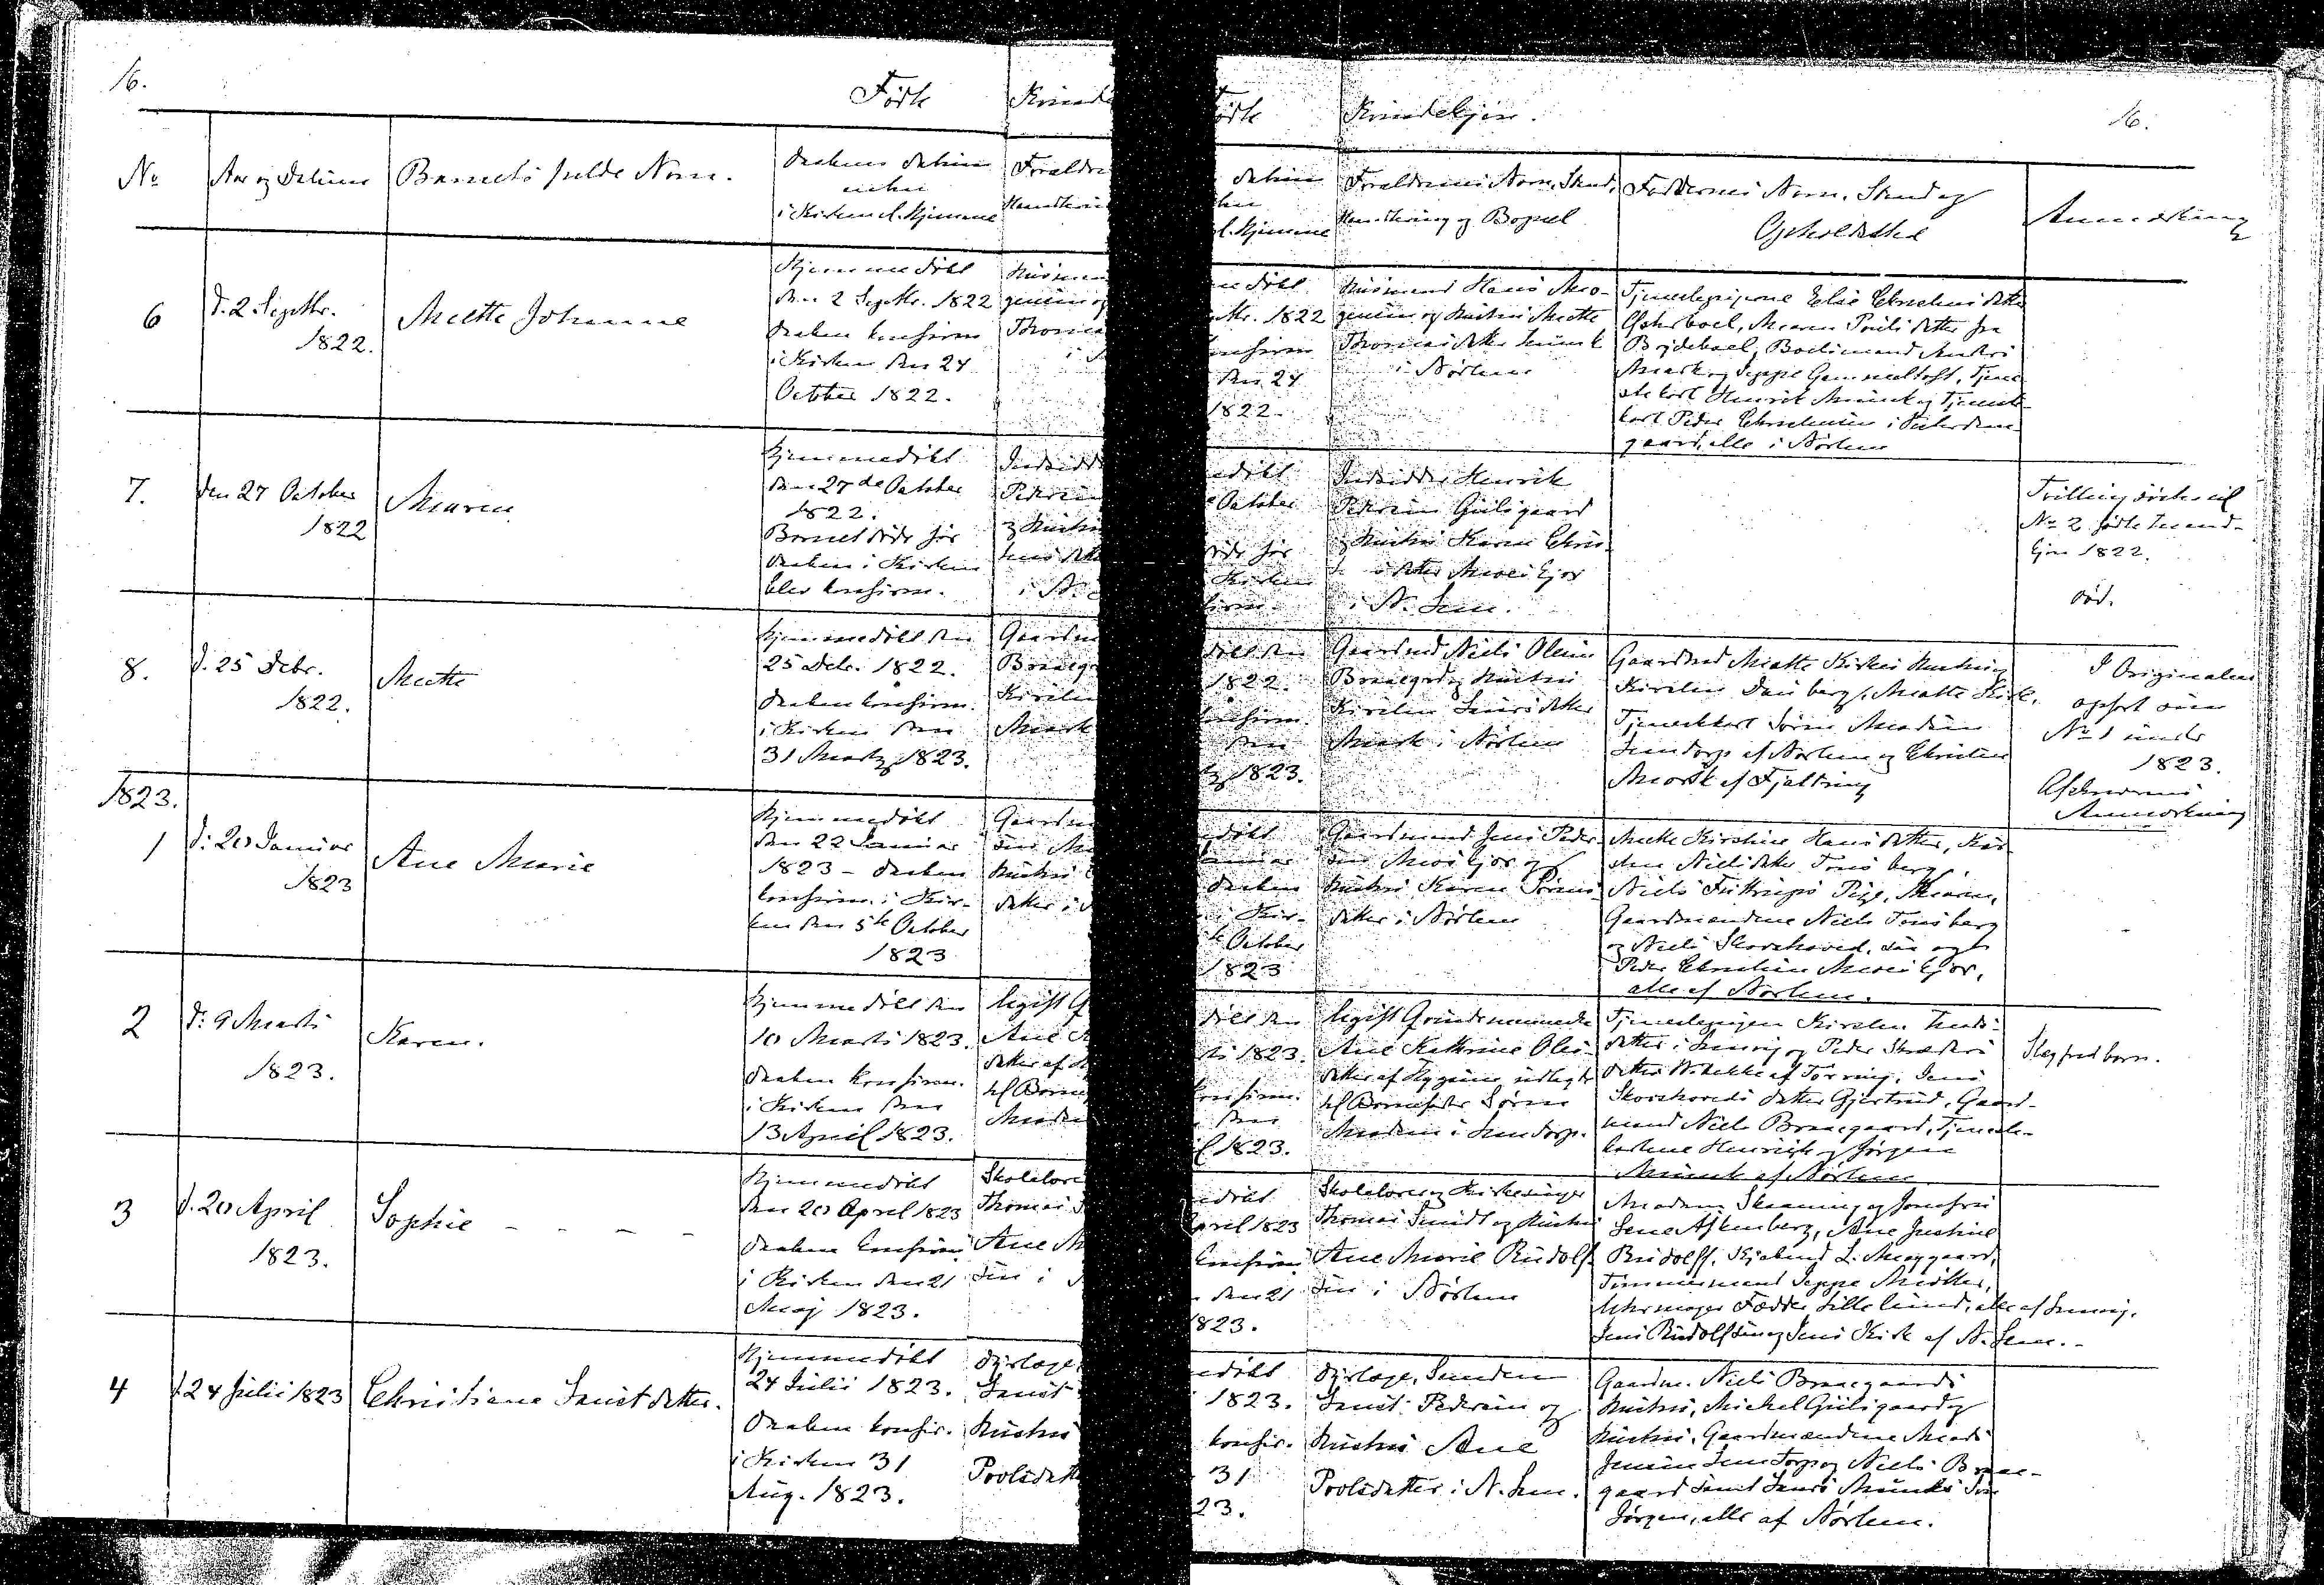 16.
Født
Kvindekjøn.
16.
No
Aar og Datum
Barnets fulde Navn.
Daabens Datum
enten
i Kirken el. Hjemme
Forældrenes Navn, Stand,
Handtering og Bopæl
Faddernes Navn, Stand og
Opholdssted
Anmærkning
6
d. 2 Septbr.
1822.
Mette Johanne
Hjemmedøbt
den 2 Septbr. 1822
Daaben konfirm
i Kirken den 24
October 1822.
Husmand Hans Mo-
gensen og Hustru Mette
Thomasdatter Munk
i Nørlem
Tjenestepigerne Else Christensdatter
Maren Poulsdatter fra
Boelsmand Anders
Mark og Jeppe Gammeltoft, Tjene
stekarl Henrik Munk og Tjeneste-
karl Peder Christensen i
gaard, alle i Nørlem
7.
den 27 October
1822
Maren
Hjemmedøbt
den 27de October
1822.
Barnet døde før
Daaben i Kirken
blev konfirm.
Indsidder Henrik
Pedersen Guldgaard
og Hustru Karen Chris-
i N. Lem.
Tvillingsøster til
No 2 fødte Mand-
kjøn 1822.
død.
8.
d. 25 Debr.
1822.
Mette
Hjemmedøbt den
25 Debr. 1822.
Daaben konfirm.
i Kirken den
31 Marts 1823.
Gaardmd Niels Olesen
Braaegrd og Hustru
Kirsten Jensdatter
Mark i Nørlem
Gaardmd Matte Kirks Hustru,
Kirsten Dausberg, Matte Kirk,
Tjenestekarl Søren Madsen
Lemtorp af Nørlem og Christen
Mark af Fjaltring
I Originalen
opført som
No 1 under
1823.
Afskriverens
Anmærkning
1823.
1
d: 20 Januar
1823
Ane Marie
Hjemmedøbt
den 22 Januar
1823 - Daaben
konfirm. i Kir-
ken den 5te October
1823
Gaardmand Jens Peder-
sen Møskjær og
Hustru Karen Sørens-
datter i Nørlem
Mette Kirstine Hansdatter, Kir-
sten Nielsdatter Tousberg,
Niels Pige, Maren,
Gaardmændene Niels Tousberg
og Niels Skovshoved, samt
Peder Christian Møskjær,
alle af Nørlem.
2
d: 9 Marts
1823.
Karen.
Hjemmedøbt den
10 Marts 1823.
Daaben konfirm.
i Kirken den
13 April 1823.
Ugift Qvindemenneske
Ane Kathrine Oles-
datter af Hygum, udlagt
til Barnefader Søren
Madsen i Lemtorp.
Tjenestepigen Kirsten Mads-
datter i Lemvig og Peder Skræders
datter af Tørring, Jens
Skovshoveds datter Gjertrud, Gaard-
mand Niels Braaegaard, Tjeneste-
karlene Henrich og Jørgen
Munk af Nørlem
Slegfred barn.
3
d. 20 April
1823.
Sophie - - -
Hjemmedøbt
den 20 April 1823
Daaben konfirm
i Kirken den 21
Maj 1823.
Skolelærer og Kirkesanger
Thomas Smidt og Hustru
Ane Marie Rudolf-
sen i Nørlem
Madam Skaaning og Jomfru
Lene Ane Justine
Rudolff, Kjøbmd L. Møggaard,
Tømmermand Jeppe Møller,
Uhrmager Fedder Lillelund, alle af Lemvig.
Jens Rudolfsen og Jens Kirk af N. Lem.
4
d 24 Julii 1823
Christiane Laustdatter.
Hjemmedøbt
24 Julii 1823.
Daaben konfir.
i Kirken 31
Aug. 1823.
Dyrlæge, Smeden
Laust Pedersen og
Hustru Ane
Povlsdatter i N. Lem.
Gaardm. Niels Braaegaards
Hustru, Mickel Guldgaard og
Hustru, Gaardmændene Mads
Jensen Lemtorp og Niels Braae-
gaard samt Lauds Munks Søn
Jørgen, alle af Nørlem.